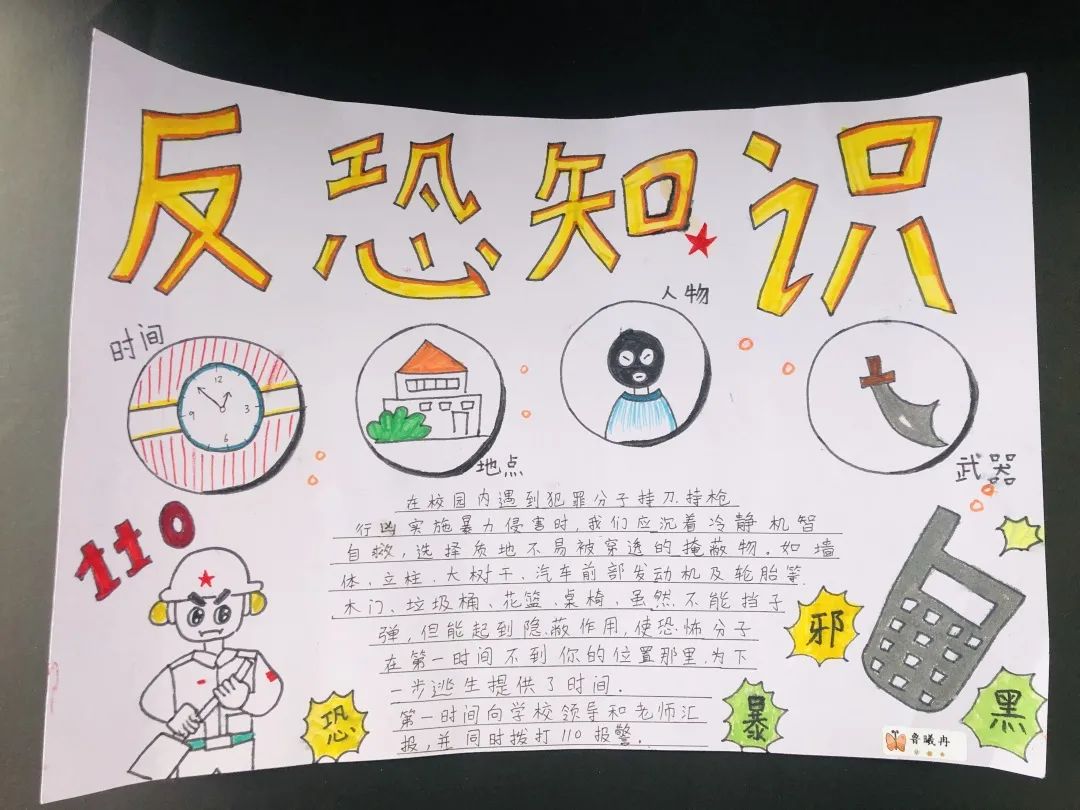 反恐知识
时间
地点
人物
武器
12
3
6
9
110
在校园内遇到犯罪分子持刀持枪
行凶实施暴力侵害时,我们应沉着冷静机智
自救,选择质地不易被穿透的掩蔽物。如墙
体、立柱、大树干、汽车前部发动机及轮胎等.
木门、垃圾桶、花篮、桌椅、虽然不能挡子
弹,但能起到隐蔽作用,使恐怖分子
在第一时间不到你的位置那里.为下
一步逃生提供了时间.
第一时间向学校领导和老师汇
报,并同时拨打110报警.
恐
暴
邪
黑
鲁曦冉